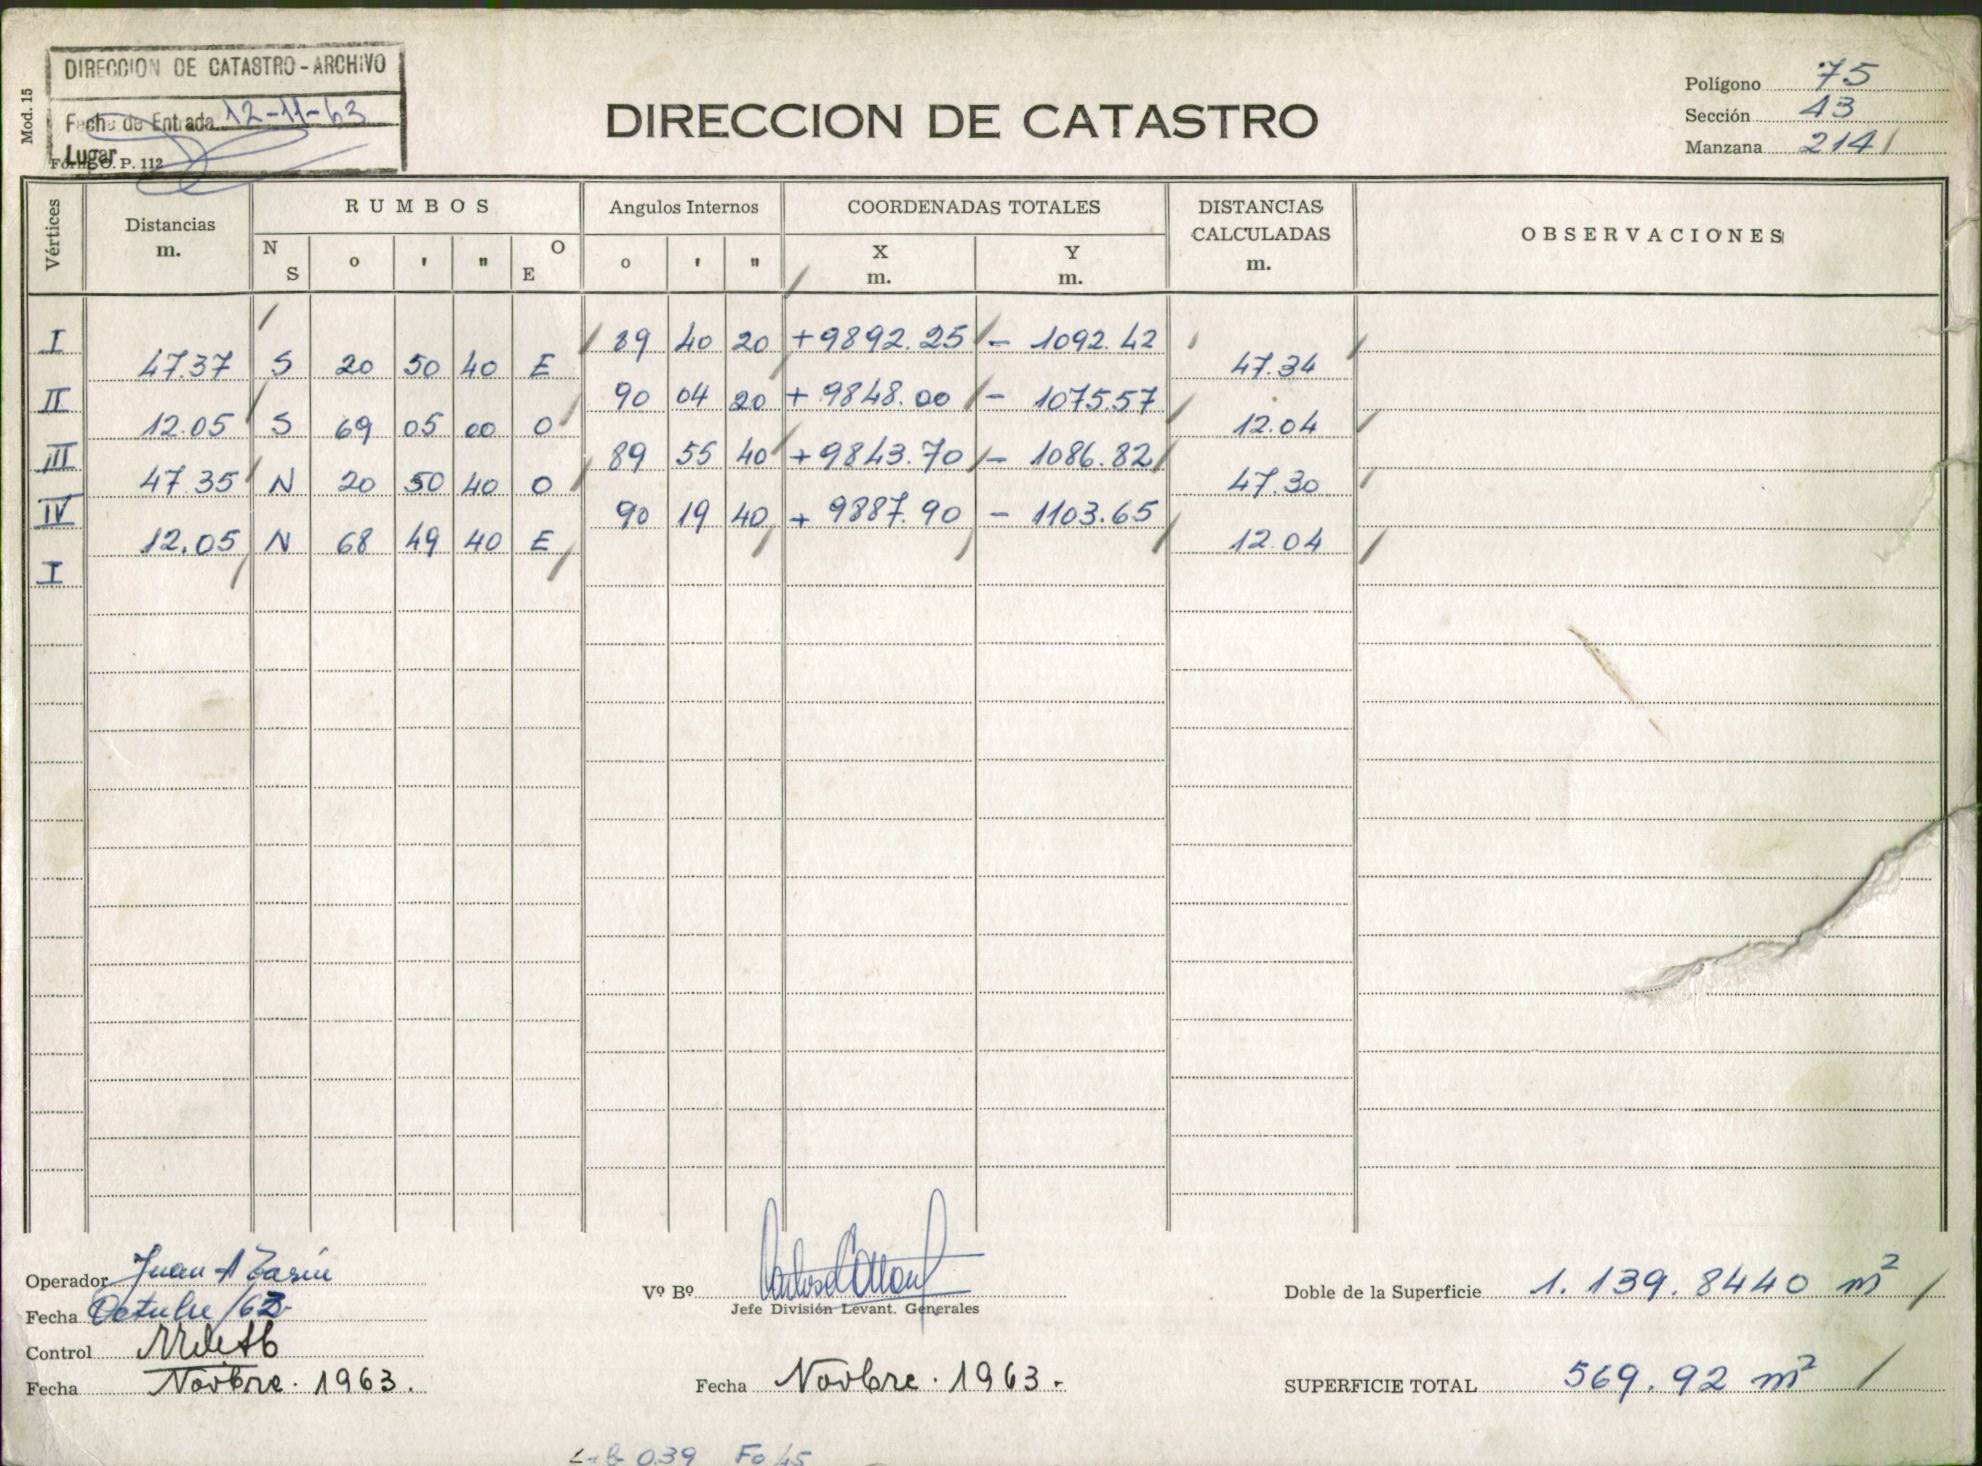 DIRECCION DE CATASTRO - ARCHIVO
Fecha de Entrada 12-11-63
Lugar
Form. O. P. 112
Mod. 15
DIRECCION DE CATASTRO
Polígono 75
Sección 43
Manzana 214
Vértices
Distancias m.
RUMBOS
N S o ' " O E
Angulos Internos
o ' "
COORDENADAS TOTALES
X m. Y m.
DISTANCIAS CALCULADAS m.
OBSERVACIONES
I 89 40 20 +9892.25 - 1092.42
47.37 S 20 50 40 E 47.34
II 90 04 20 + 9848.00 - 1075.57
12.05 S 69 05 00 O 12.04
III 89 55 40 +9843.70 - 1086.82
47.35 N 20 50 40 O 47.30
IV 90 19 40 + 9887.90 - 1103.65
12.05 N 68 49 40 E 12.04
I
Operador Juan A
Fecha Octubre /63
Control
Fecha Novbre. 1963.
Vº Bº
Jefe División Levant. Generales
Fecha Novbre. 1963.
Doble de la Superficie 1.139.8440 m²
SUPERFICIE TOTAL 569.92 m²
039 Fo 45